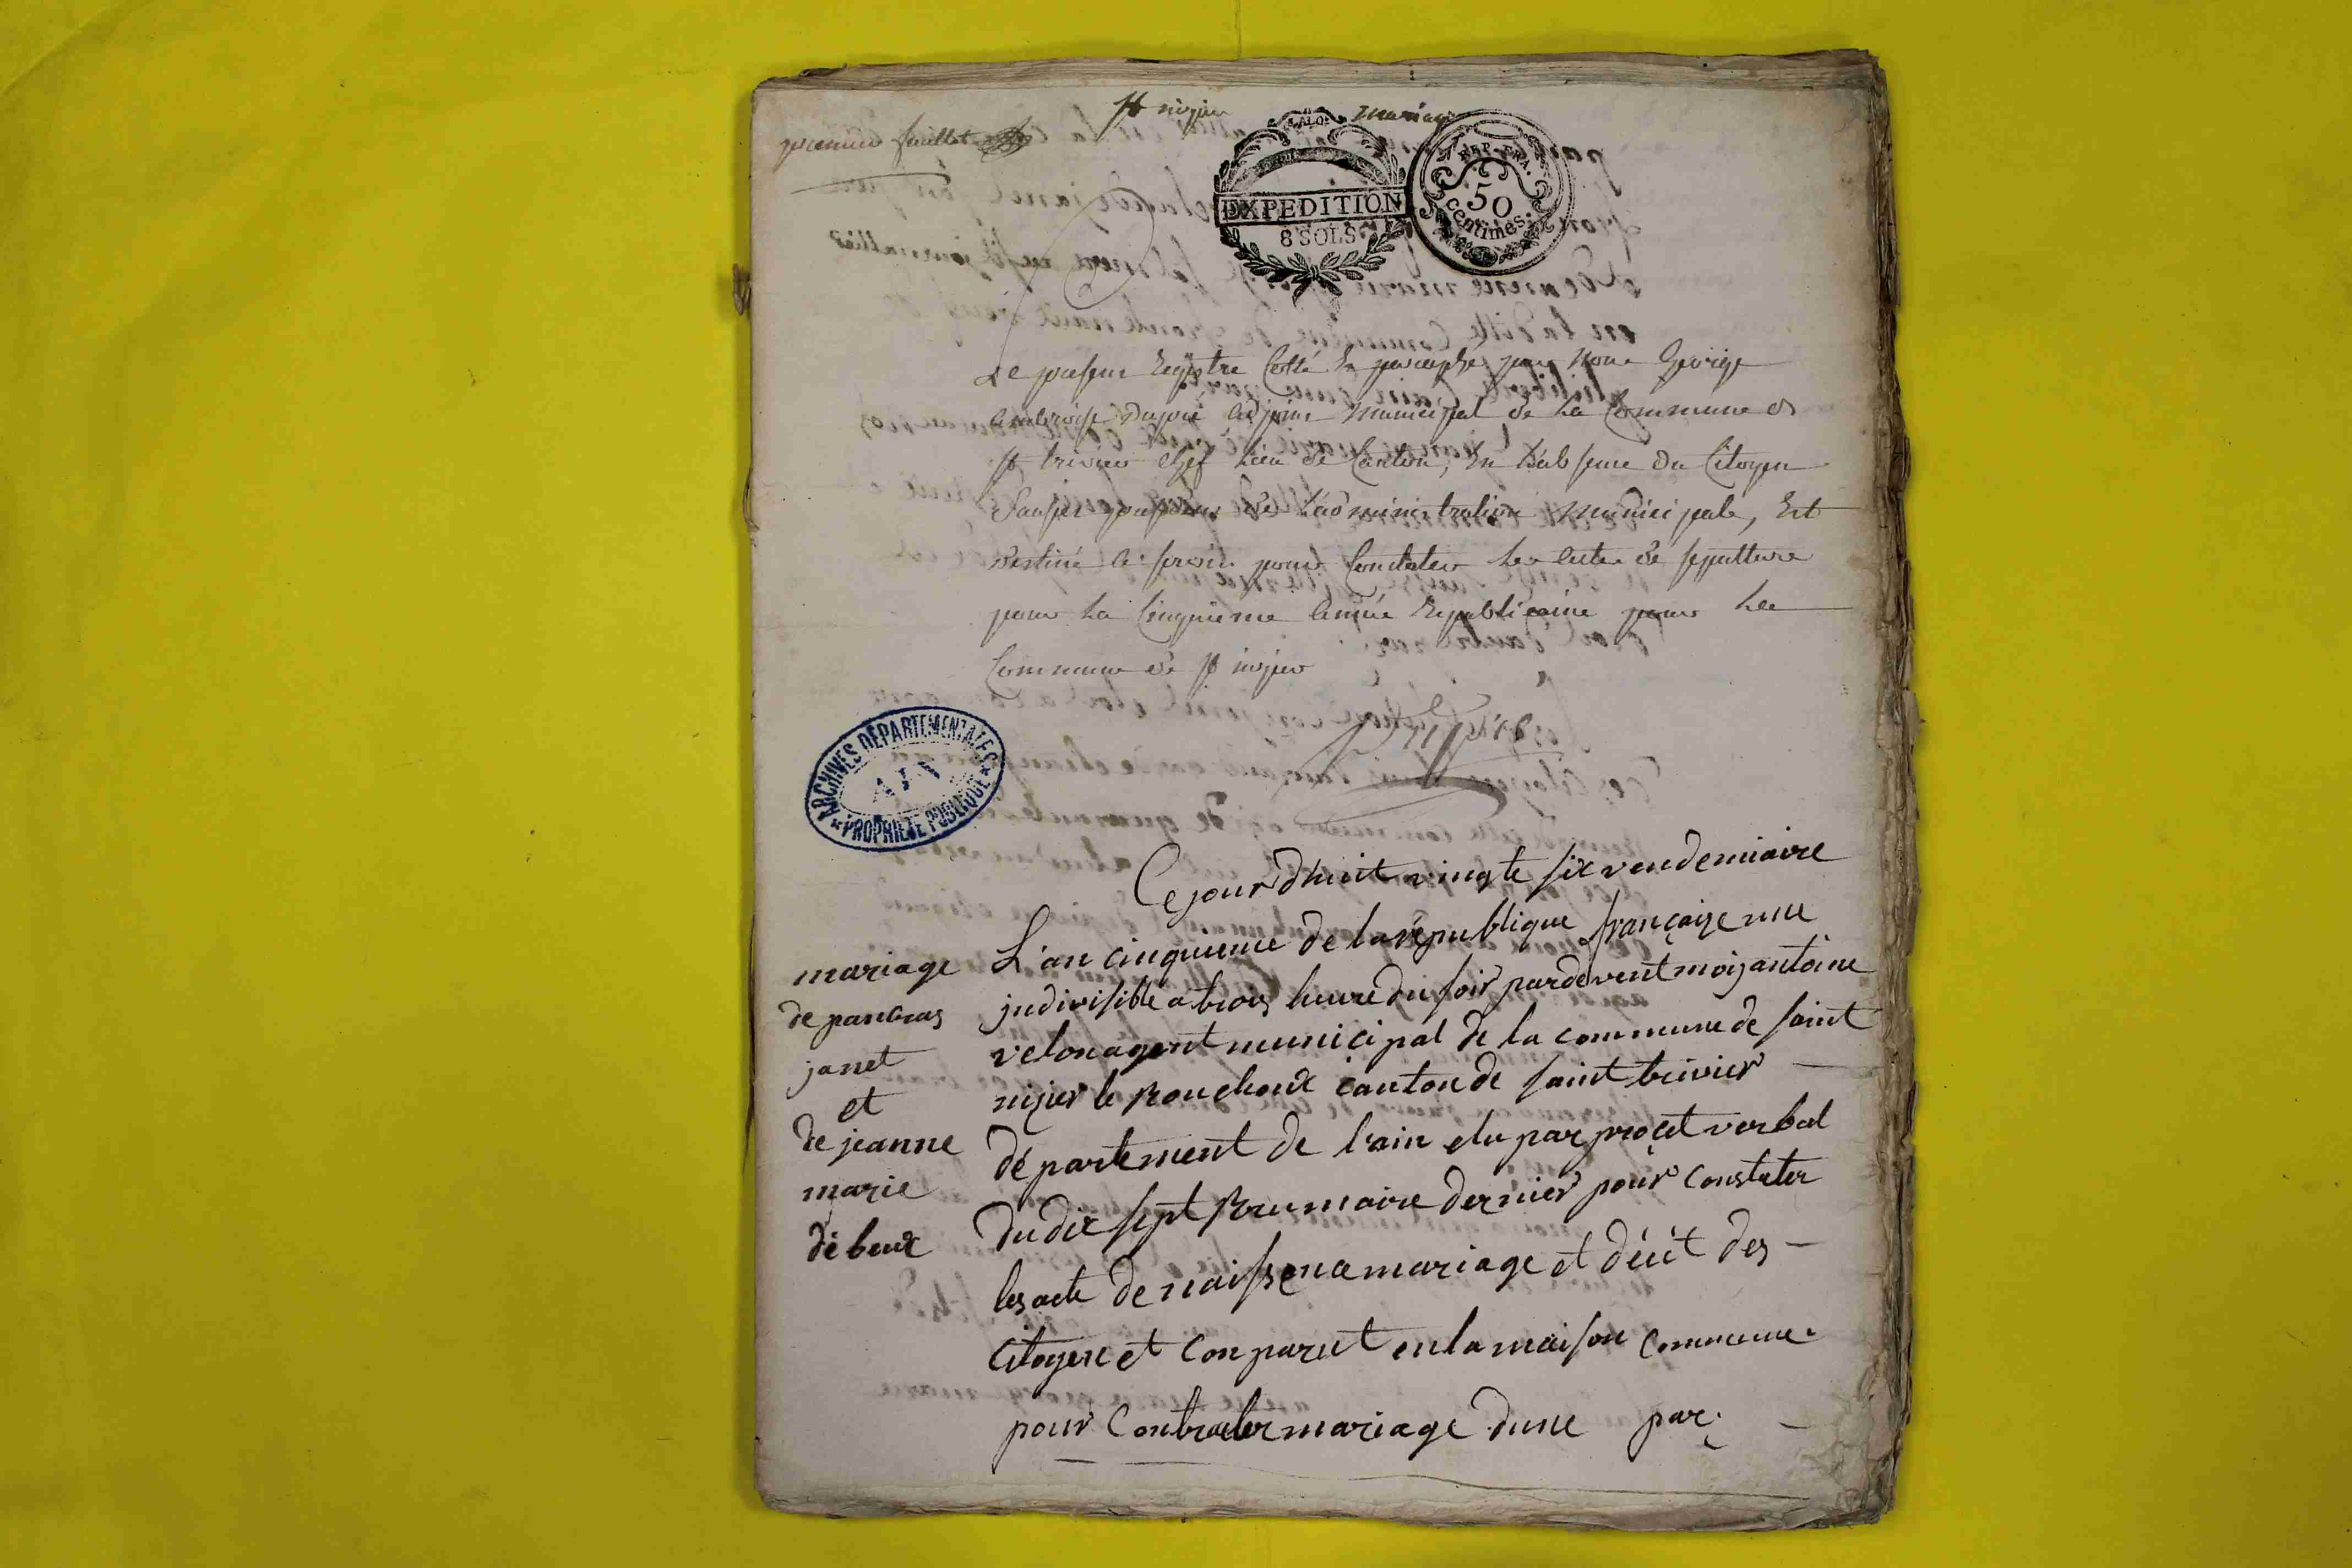 st nizier
mariage
premier feuillet
EXPEDITION
8 SOLS
REP. FRA.
50
centimes.
Le present Registre Cotté Et paraphé par nous George
ambroise adjoint municipal de la Commune de
st trivier chef lieu de Canton, En Labsence du Citoyen
president de Ladministration municipale, Est
destiné a servir pour Constater les actes de sepulture
pour La Cinquieme année Republicaine pour la
Commune de st nizier
ARCHIVES DÉPARTEMENTALES
AIN
PROPRIÉTÉ PUBLIQUE
Cejourdhuit vingte six vendemiaire
L'an cinquieme de la république françaize une
jndivisible a trois heure du soir pardevent moij antoine
velon agent municipal de la commune de saint
nizier le Bouchoux canton de saint trivier
département de l'ain elu par procet verbal
du dix sept Brumaire dernier pour Constater
les acte de naissence mariage et décit des
citoyen et Conparut en la maison Commune
pour Contracter mariage dune par
mariage
de pancras
janet
et
de jeanne
marie
débeux